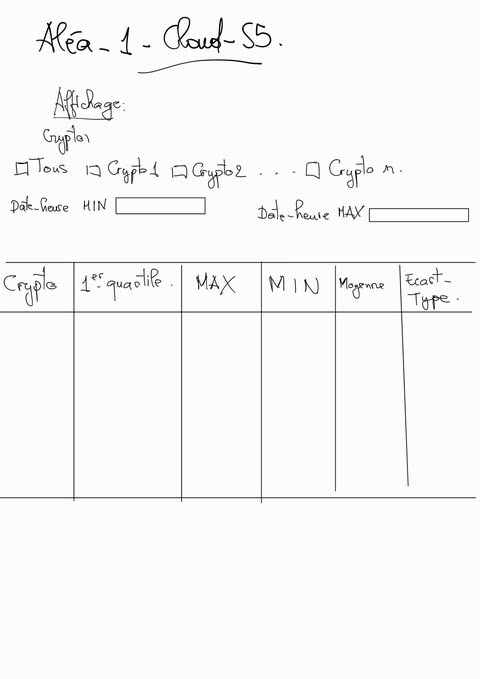 Aléa - 1 - Cloud - S5.
Affichage:
Crypto1
Tous Crypto1 Crypto2 ... Crypto n.
Date-heure MIN Date-heure MAX
Crypto 1er quartile. MAX MIN Moyenne Ecart-
Type.